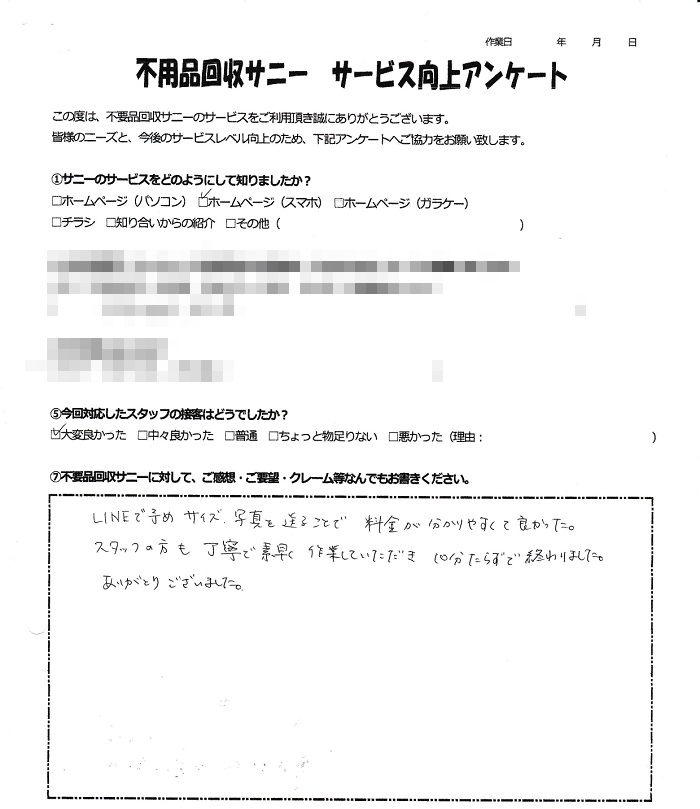 作業日 年 月 日
不用品回収サニー サービス向上アンケート
この度は、不要品回収サニーのサービスをご利用頂き誠にありがとうございます。
皆様のニーズと、今後のサービスレベル向上のため、下記アンケートへご協力をお願い致します。
①サニーのサービスをどのようにして知りましたか？
□ホームページ（パソコン） ☑ホームページ（スマホ） □ホームページ（ガラケー）
□チラシ □知り合いからの紹介 □その他（ ）
⑤今回対応したスタッフの接客はどうでしたか？
☑大変良かった □中々良かった □普通 □ちょっと物足りない □悪かった（理由： ）
⑦不要品回収サニーに対して、ご感想・ご要望・クレーム等なんでもお書きください。
LINEで予め サイズ、写真を送ることで 料金が分かりやすくて良かった。
スタッフの方も 丁寧で素早く 作業していただき 10分たらずで終わりました。
ありがとうございました。